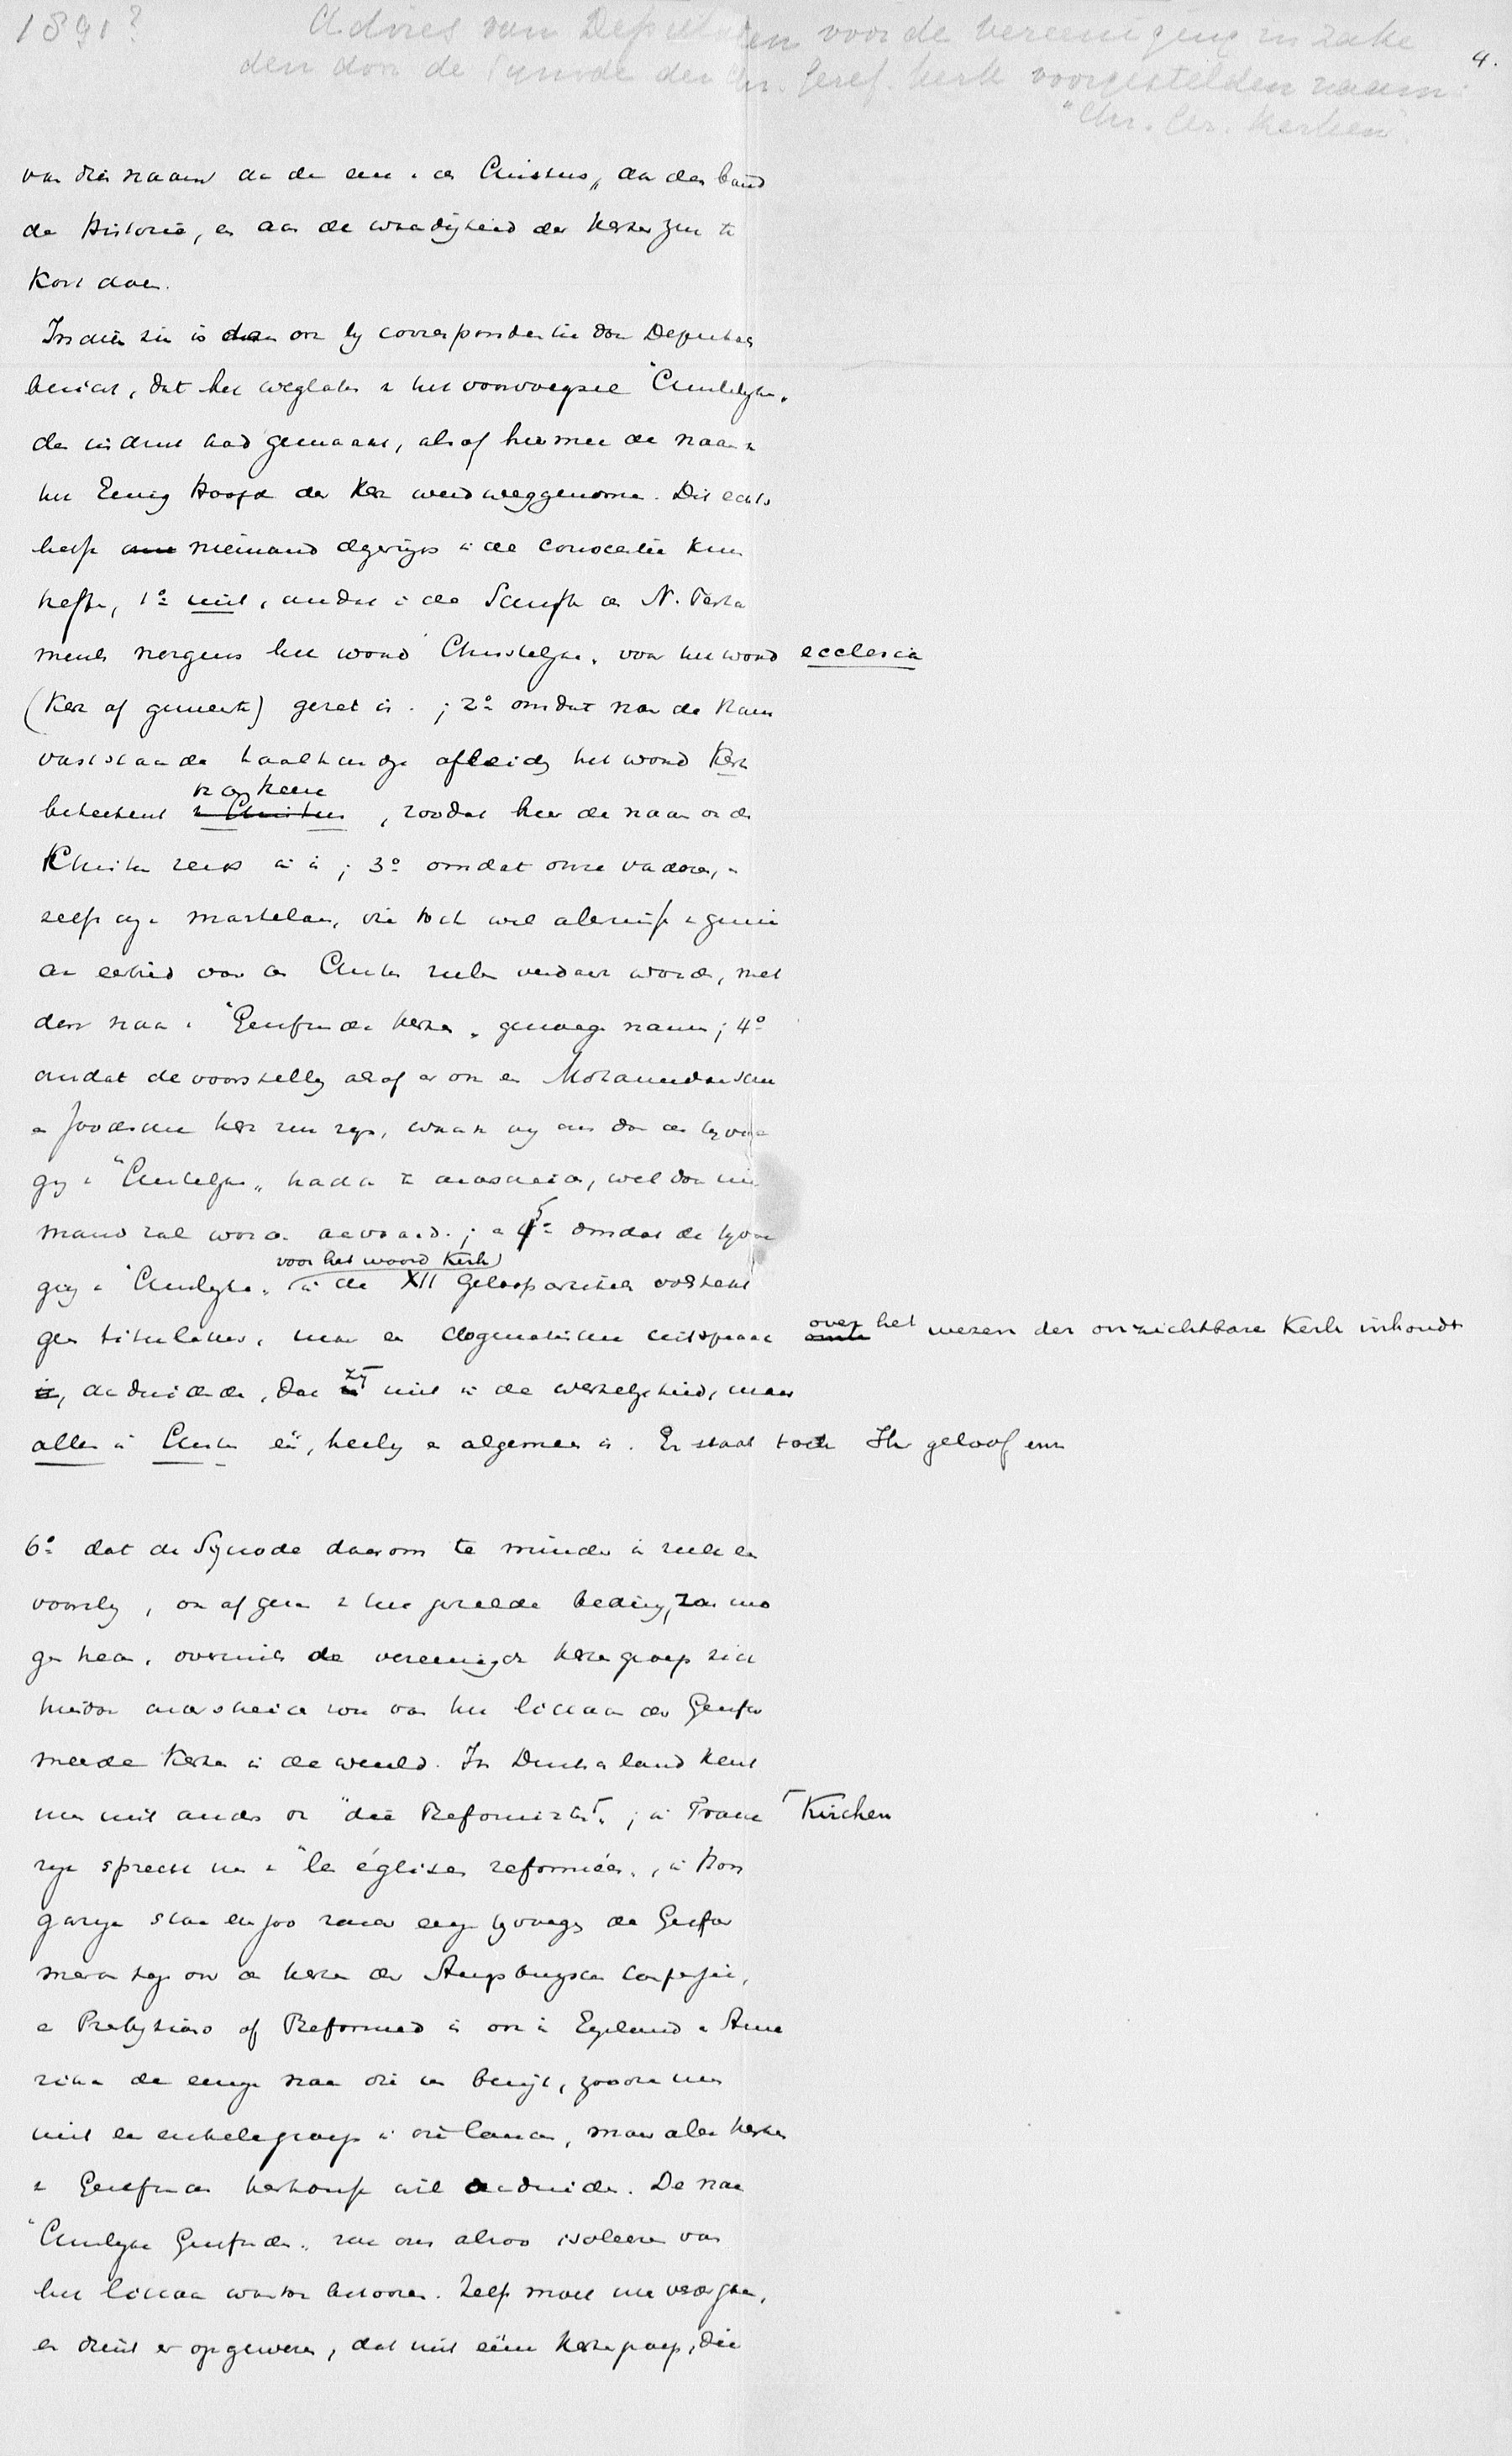 1891? Adres van Deputaten voor de vereeniging in zake
4.
den door de Synode der Chr. Geref. Kerk voorgestelden naam:
"Chr. Ger. Kerken".
van dien naam aan de eer van Christus, aan den band
der Historie, en aan de waardigheid der Kerken zou te
kort doen.
In dien zin is dan ook bij correspondentie door Deputaten
bericht, dat het weglaten van het voorvoegsel "Christelijke"
den indruk had gemaakt, alsof hiermee de naam van
het Eenig Hoofd der Kerk werd weggenomen. Dit echter
heeft niemand dergenen in de convocatie kunnen
treffen, 1o niet, omdat in de Schrift des N. Testa
ments nergens het woord "Christelijke" voor het woord ecclesia
(Kerk of gemeente) gezet is; 2o omdat naar de thans
vaststaande taalkundige afleiding het woord Kerk
beteekent van den Heere, zoodat hier de naam van den
Christus reeds in is; 3o omdat onze vaderen, en
zelfs onze martelaren, die toch wel allerminst van gemis
aan eerbied voor den Christus zullen verdacht worden, met
den naam van "Gereformeerde Kerken" genoegen namen; 4o
omdat de voorstelling alsof er ook een Mohammedaansche
en Joodsche kerk zou zijn, waarvan wij ons door de bijvoe
ging van "Christelijke" hadden te onderscheiden, wel door nie
mand zal worden aanvaard; en 5o omdat de bijvoe
ging van "Christelijke" voor het woord Kerk in de XII Geloofsartikelen volstrekt
geen titulatuur, maar een dogmatische uitspraak over het wezen der onzichtbare Kerk inhoudt
, aanduidende, dat zij niet in de werkelijkheid, maar
alleen in Christus één, heilig en algemeen is. Er staat toch Ik geloof eene
6o dat de Synode daarom te minder in zulk een
voorstel, ook afgezien van het gestelde beding, zou mo
gen treden, overmits de vereenigde kerkengroep zich
hierdoor afscheiden zou van het lichaam der Gerefor
meerde Kerken in de wereld. In Duitschland kent
men niet anders dan "die Reformirten Kirchen"; in Frank
rijk spreekt men van "les églises reformées", in Hon
garije staan evenzoo zonder eenige bijvoeging de Gerefor
meerden tegenover de kerken der Augsburgsche Confessie,
en Presbyterians of Reformed is ook in Engeland en Ame
rika de eenige naam dien men bezigt, zoodra men
niet een enkele groep in die landen, maar alle kerken
van Gereformeerde herkomst wil aanduiden. De naam
"Christelijke Gereformeerde" zou ons alzoo isoleeren van
het lichaam waartoe we behooren. Zelfs moet men verder gaan,
en dient er op gewezen, dat niet eene kerkengroep, die